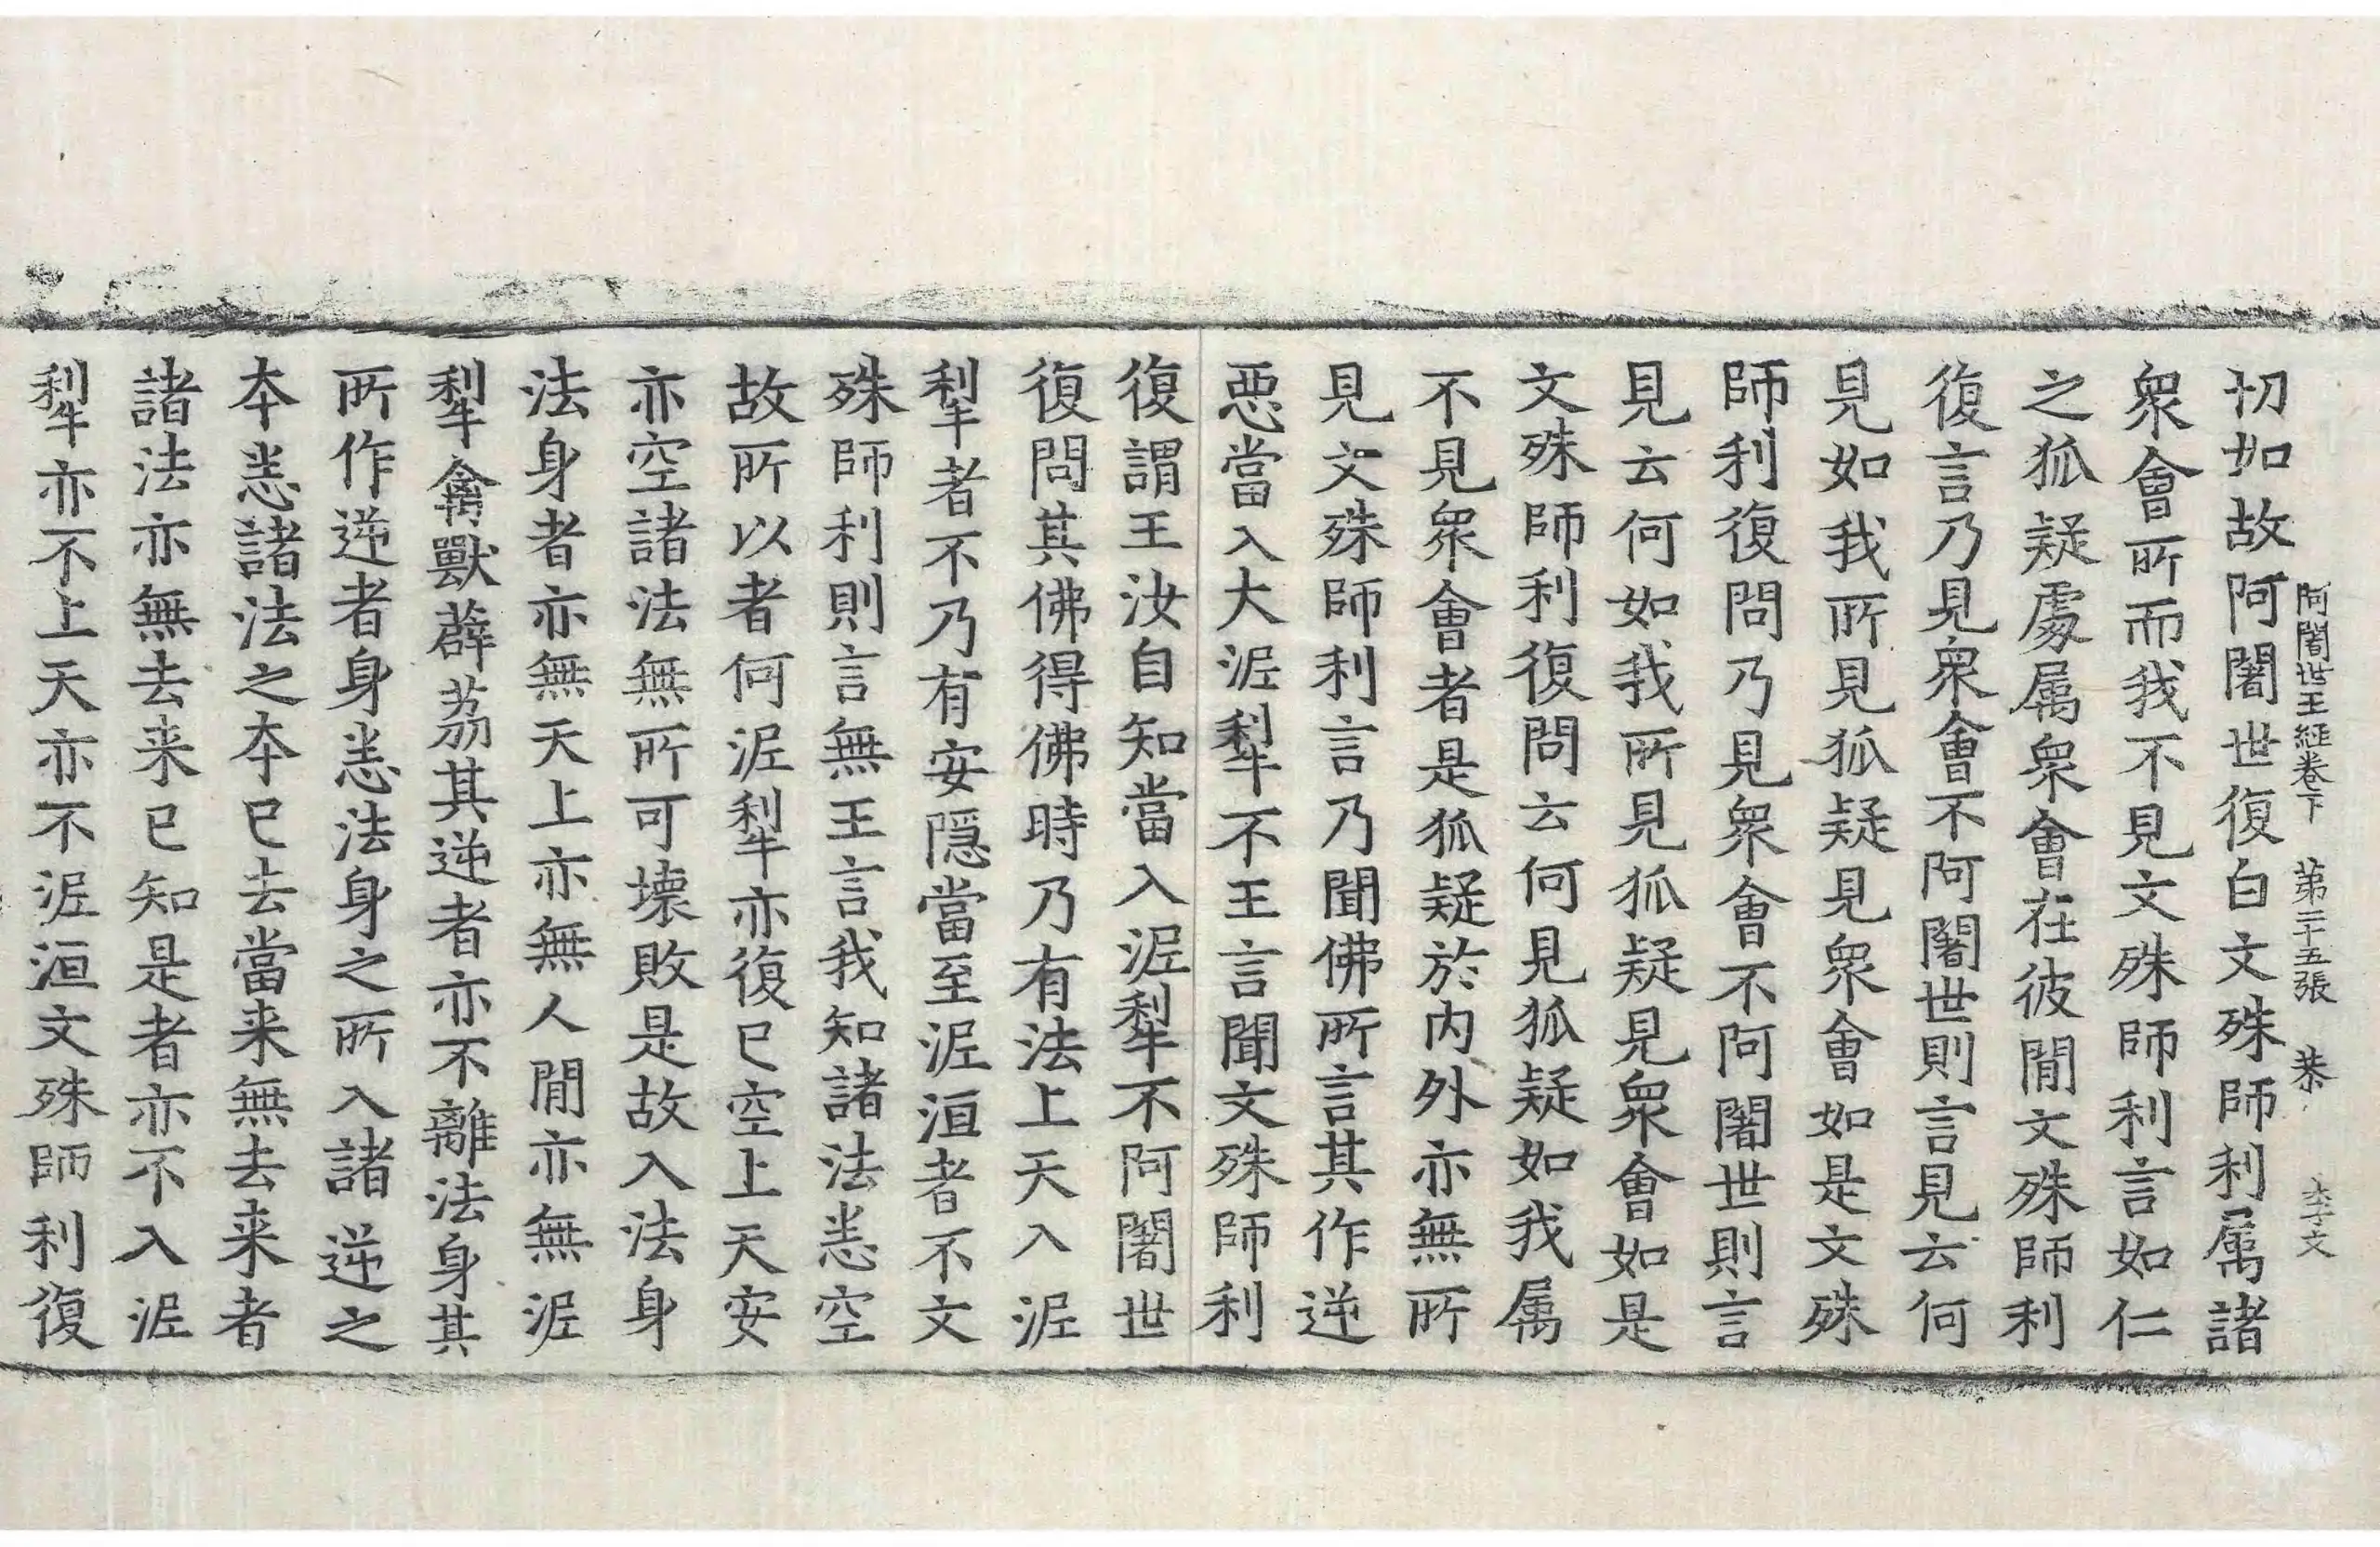 阿闍世王經卷下 第二十五張 恭 李文
切如故阿闍世復白文殊師利属諸
衆會所而我不見文殊師利言如仁
之狐疑處属衆會在彼閒文殊師利
復言乃見衆會不阿闍世則言見云何
見如我所見狐疑見衆會如是文殊
師利復問乃見衆會不阿闍世則言
見云何如我所見狐疑見衆會如是
文殊師利復問云何見狐疑如我属
不見衆會者是狐疑於内外亦無所
見文殊師利言乃聞佛所言其作逆
惡當入大泥犁不王言聞文殊師利
復謂王汝自知當入泥犁不阿闍世
復問其佛得佛時乃有法上天入泥
犁者不乃有安隱當至泥洹者不文
殊師利則言無王言我知諸法悉空
故所以者何泥犁亦復已空上天安
亦空諸法無所可壞敗是故入法身
法身者亦無天上亦無人閒亦無泥
犁禽獸薜荔其逆者亦不離法身其
所作逆者身悉法身之所入諸逆之
本悉諸法之本已去當来無去来者
諸法亦無去来已知是者亦不入泥
犁亦不上天亦不泥洹文殊師利復